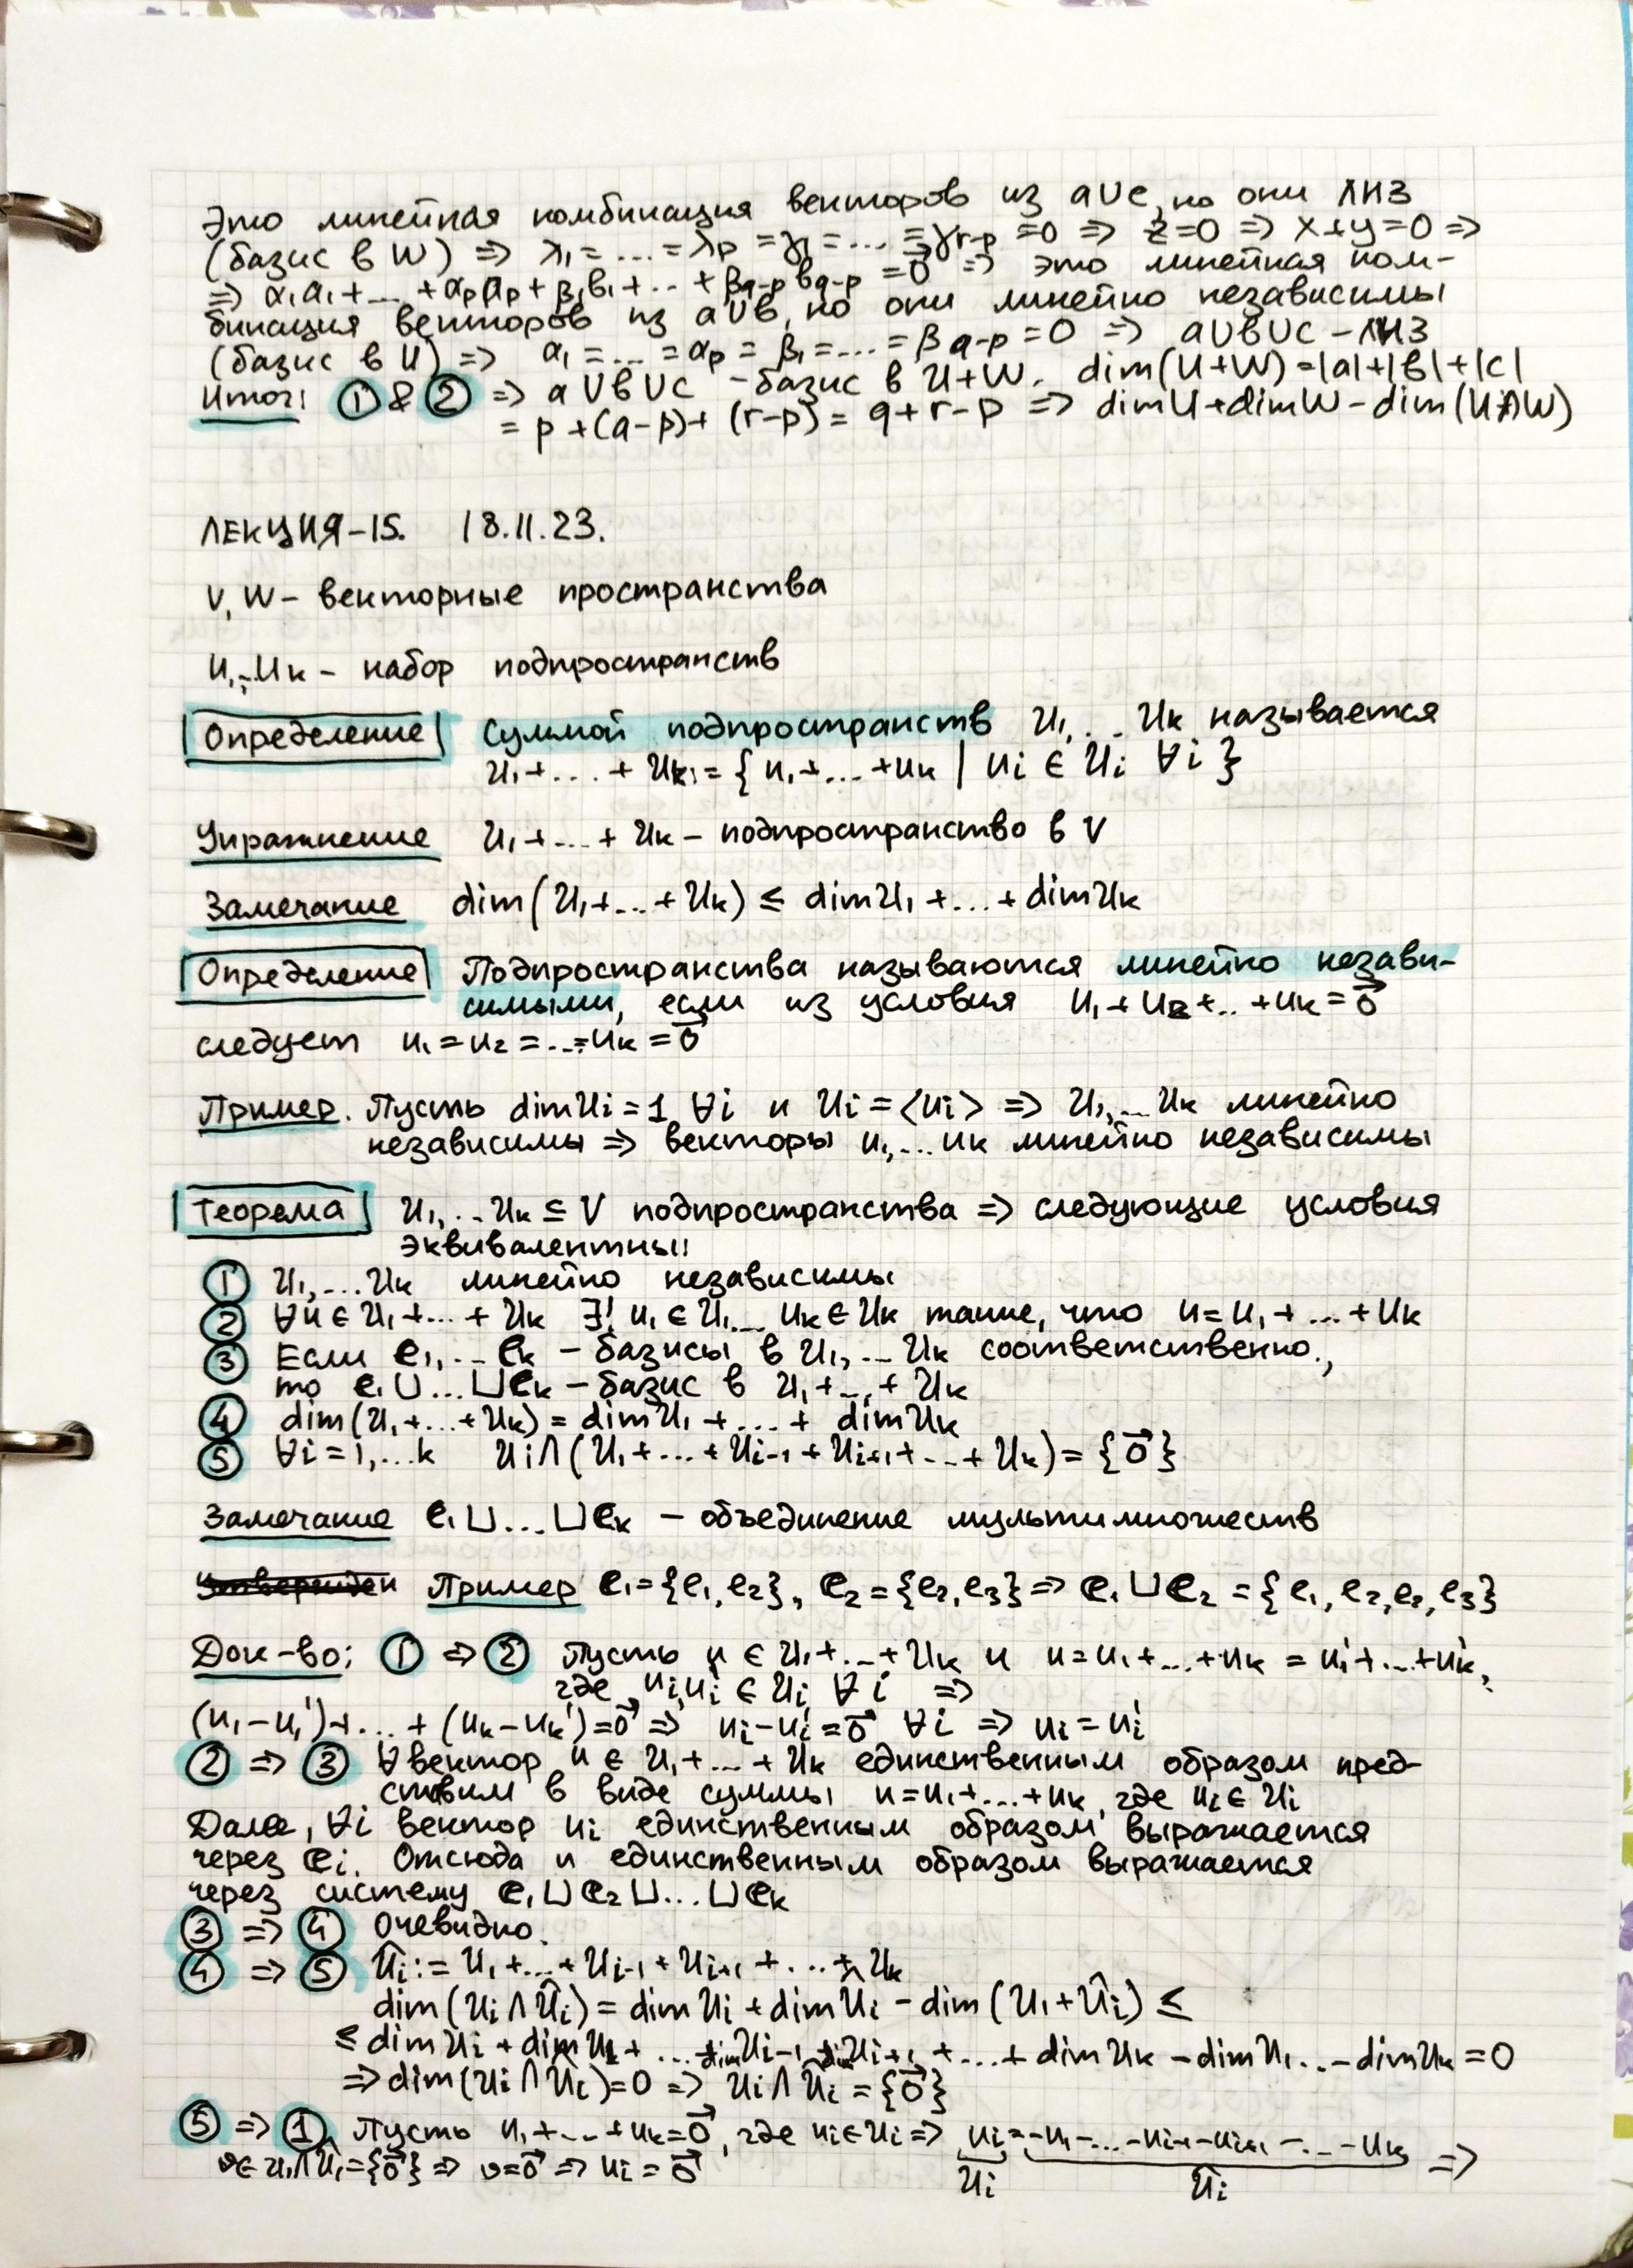 Это линейная комбинация векторов из a∪c, но они ЛНЗ
(базис в W) => λ₁=...=λp=γ₁=...=γr-p=0 => z=0 => x+y=0 =>
=> α₁a₁+...+αpap+β₁b₁+...+βq-pbq-p=0⃗ => это линейная ком-
бинация векторов из a∪b, но они линейно независимы
(базис в U) => α₁=...=αp=β₁=...=βq-p=0 => a∪b∪c - ЛНЗ
Итог: ① & ② => a∪b∪c - базис в U+W. dim(U+W)=|a|+|b|+|c|
= p+(q-p)+(r-p)=q+r-p => dimU+dimW-dim(U∩W)
ЛЕКЦИЯ-15. 18.11.23.
V, W - векторные пространства
U₁,...Uk - набор подпространств
Определение Суммой подпространств U₁,...Uk называется
U₁+...+Uk:={u₁+...+uk | ui ∈ Ui ∀i}
Упражнение U₁+...+Uk - подпространство в V
Замечание dim(U₁+...+Uk) ≤ dimU₁+...+dimUk
Определение Подпространства называются линейно незави-
симыми, если из условия u₁+u₂+...+uk=0⃗
следует u₁=u₂=...=uk=0⃗
Пример. Пусть dimUi=1 ∀i и Ui=<ui> => U₁,...Uk линейно
независимы => векторы u₁,...uk линейно независимы
Теорема U₁,...Uk ⊆ V подпространства => следующие условия
эквивалентны:
① U₁,...Uk линейно независимы
② ∀u∈U₁+...+Uk ∃! u₁∈U₁... uk∈Uk такие, что u=u₁+...+uk
③ Если e₁,...ek - базисы в U₁,...Uk соответственно.,
то e₁⊔...⊔ek - базис в U₁+...+Uk
④ dim(U₁+...+Uk)=dimU₁+...+dimUk
⑤ ∀i=1,...k Ui∩(U₁+...+Ui-1+Ui+1+...+Uk)={0⃗}
Замечание e₁⊔...⊔ek - объединение мультимножеств
Пример e₁={e₁,e₂}, e₂={e₂,e₃} => e₁⊔e₂={e₁,e₂,e₂,e₃}
Док-во: ① => ② Пусть u∈U₁+...+Uk и u=u₁+...+uk=u₁'+...+uk',
где ui,ui'∈Ui ∀i =>
(u₁-u₁')+...+(uk-uk')=0⃗ => ui-ui'=0⃗ ∀i => ui=ui'
② => ③ ∀вектор u∈U₁+...+Uk единственным образом пред-
ставим в виде суммы u=u₁+...+uk, где ui∈Ui
Далее, ∀i вектор ui единственным образом выражается
через ei. Отсюда u единственным образом выражается
через систему e₁⊔e₂⊔...⊔ek
③ => ④ Очевидно.
④ => ⑤ Ûi:=U₁+...+Ui-1+Ui+1+...+Uk
dim(Ui∩Ûi)=dimUi+dimÛi-dim(U₁+Ûi) ≤
≤ dimUi+dimU₁+...+dimUi-1+dimUi+1+...+dimUk-dimU₁...-dimUk=0
=> dim(Ui∩Ûi)=0 => Ui∩Ûi={0⃗}
⑤ => ① Пусть u₁+...+uk=0⃗, где ui∈Ui => ui=-u₁-...-ui-1-ui+1-...-uk =>
v∈Ui∩Ûi={0⃗} => v=0⃗ => ui=0⃗ Ui Ûi